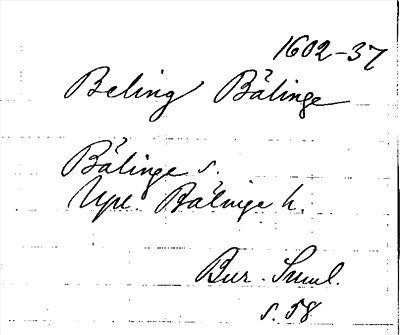 1602-37
Beling Bålinge
Bålinge s.
Upl. Bålinge h.
Bur. Suml.
s. 58